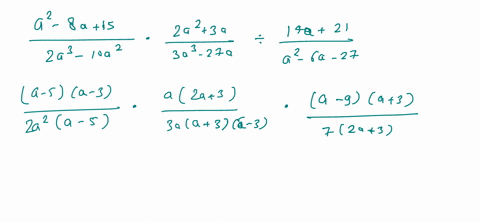 (a² - 8a + 15)/(2a³ - 10a²) · (2a² + 3a)/(3a³ - 27a) ÷ (14a + 21)/(a² - 6a - 27)
((a-5)(a-3))/(2a²(a-5)) · (a(2a+3))/(3a(a+3)(a-3)) · ((a-9)(a+3))/(7(2a+3))